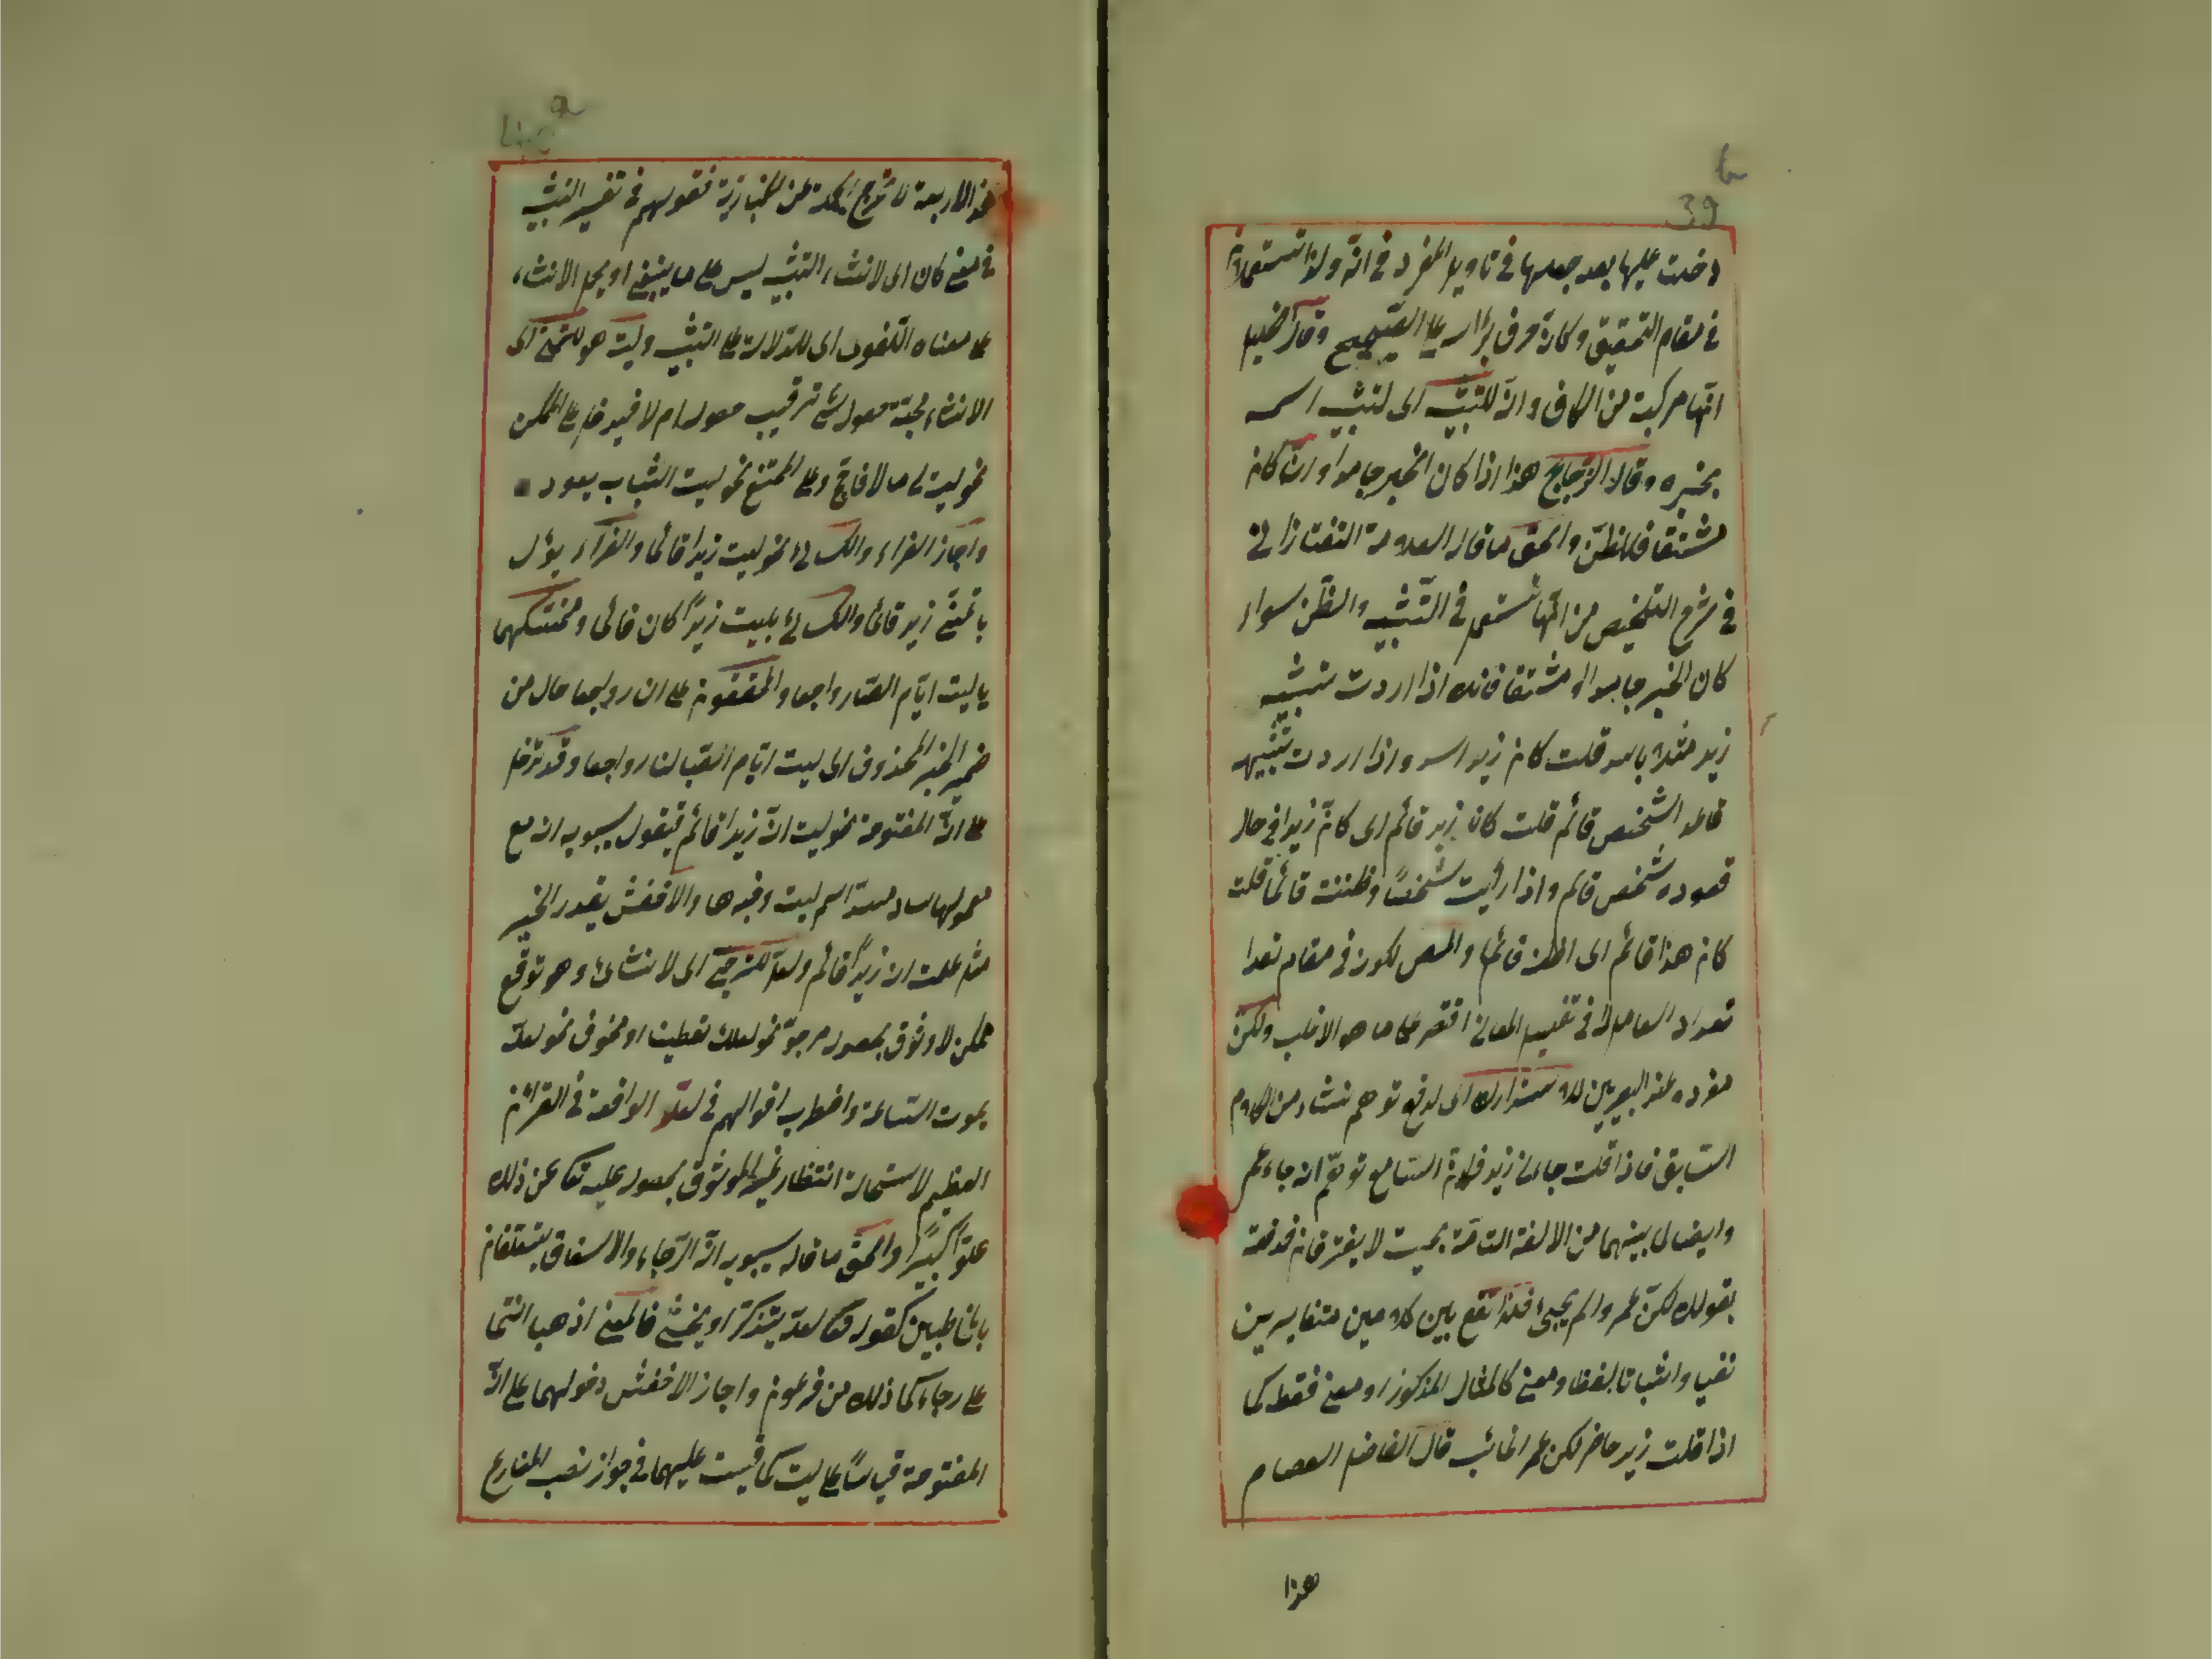 39
دخلت عليها بعد جعلها في تاويل المفرد في انّه ولذا تستعملان
في مقام التحقيق وكانّ حرف برأسه على الصّحيح وقال الخليل
انّها مركبة من الكاف وانّ للتشبيه اى لتشبيه اسمه
بخبره وقال الزّجاج هذا اذا كان الخبر جامدا وان كان
مشتقا فللظنّ والحق ما قاله العلامة التفتازانى
في شرح التلخيص من انّها تستعمل في التّشبيه والظّن سواء
كان الخبر جامدا او مشتقا فانك اذا اردت تشبيه
زيد مثلا باسد قلت كان زيد اسد واذا اردت تشبيهه
قاعد الشخص قائم قلت كان زيد قائم اى كانّ زيدا في حال
قعوده شخص قائم واذا رأيت شخصًا وظننت قائما قلت
كان هذا قائم اى اظنه قائما والمص لكونه في مقام تعدا
تعداد العامل لا في تفصيل المعانى اقتصر على ما هو الاغلب ولكنّ
مفرده عند البصريين للاستدراك اى لدفع توهم نشاء من الكلام
السّابق فاذا قلت جاءنى زيد السّامع توهّم انه جاء عمر
وايضا لما بينهما من الالفة التامّة بحيث لا يفترقان فدفعته
بقولك لكنّ عمروا لم يجئ فلذا تقع بين كلامين متغايرين
نفيا واثباتا لفظا ومعنى كالمثال المذكور او معنى فقط كما
اذا قلت زيد حاضر لكن عمرا غائب قال الفاضل العصام
هذا
هذه الاربعة لا تخرج الجملة عن الخبارية فقولهم في تفسير التشبيه
في معنى كان اى لانشاء التشبيه ليس على ما ينبغى او يحمل الانشاء
على معناه اللّغوى اى للدّلالة على التشبيه وليت هو للتمنّى اى
الانشاء محبّة حصول شئ ترقيب حصوله ام لا فيدخل على الممكن
نحو ليت لى مالا فاحجّ وعلى الممتنع نحو ليت الشباب يعود
واجاز الفراء والكسائى نحو ليت زيدا قائما والفرّاء يؤل
باتمنّى زيد قائما والكسائى بليت زيدًا كان قائما ومتمسّكهما
يا ليت ايّام الصّبا رواجعا والمحققون على ان رواجعا حال من
ضمير الخبر المحذوف اى ليت ايّام الصّبا لنا رواجعا وقد تدخل
على انّ المفتوحة نحو ليت انّ زيدا قائم فيقول سيبويه انه مع
معمولها ساد مسدّ اسم ليت وخبرها والاخفش يقدر الخبر
مثل علمت ان زيدًا قائم ولعلّ للترجّى اى لانشائه وهو توقّع
ممكن لا وثوق بحصوله مرجوّ نحو لعلك تعطينا او مخوف نحو لعلّه
يموت السّاعة واضطرب اقوالهم في لعلّ الواقعة في القرآن
العظيم لاستحالة انتظار غير الموثوق بحصوله عليه تعا عن ذلك
علوّا كبيرًا والحق ما قاله سيبويه انّ الرّجاء والاشفاق يتعلّقان
بالمخاطبين كقوله تعا لعلّه يتذكّر او يخشى فالمعنى اذهبا انتما
على رجاءكما ذلك من فرعون واجاز الاخفش دخولهما على انّ
المفتوحة قياسًا على ليت كما قيست عليهما في جواز نصب المضارع